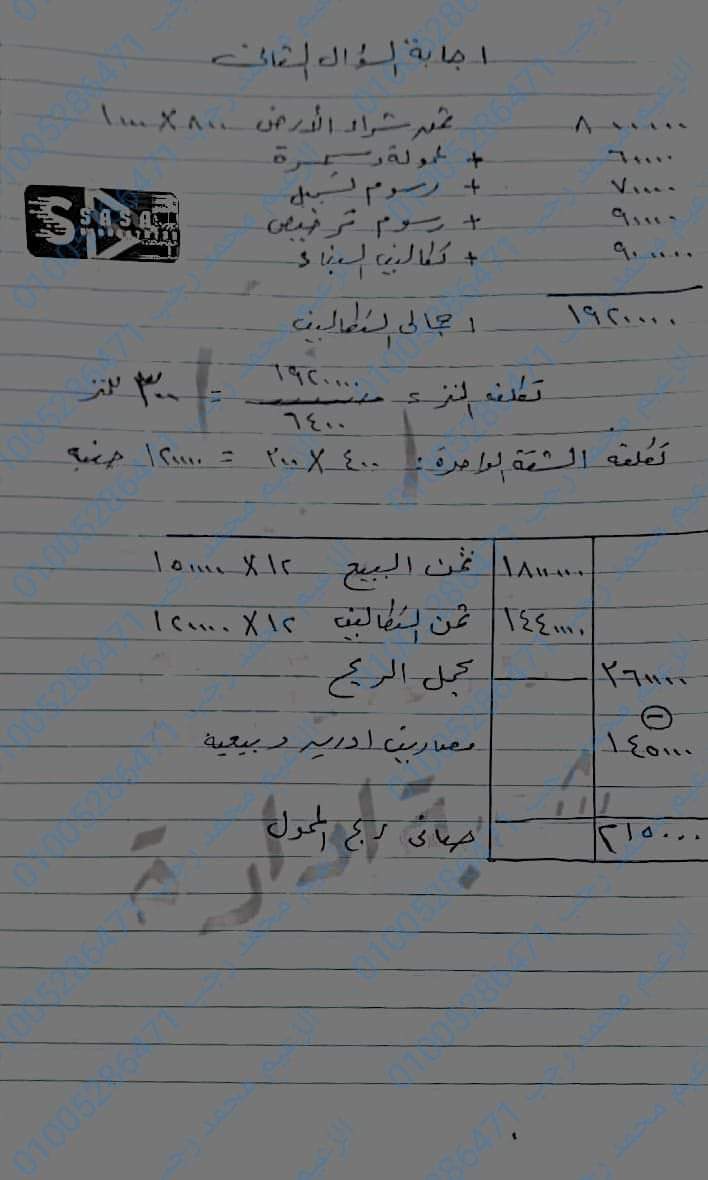 اجابة السؤال الثاني
ثمن شراء الأرض ٨٠٠ × ١٠٠٠ ٨٠٠٠٠٠
+ عمولة وسمسرة ٦٠٠٠٠
+ رسوم تسجيل ٧٠٠٠٠
+ رسوم ترخيص ٩٠٠٠٠
+ تكاليف البناء ٩٠٠٠٠٠
SASA
اجمالى التكاليف ١٩٢٠٠٠٠
تكلفة المتر = ١٩٢٠٠٠٠ / ٦٤٠٠ = ٣٠٠ للمتر
تكلفة الشقة الواحدة: ٤٠٠ × ٣٠٠ = ١٢٠٠٠٠ جنيه
ثمن البيع ١٢ × ١٥٠٠٠٠ ١٨٠٠٠٠٠
ثمن التكاليف ١٢ × ١٢٠٠٠٠ ١٤٤٠٠٠٠
مجمل الربح ٣٦٠٠٠٠
(-)
مصاريف ادريه وبيعية ١٤٥٠٠٠
صافى ربح الممول ٢١٥٠٠٠
الزعيم محمد رجب 01005286471